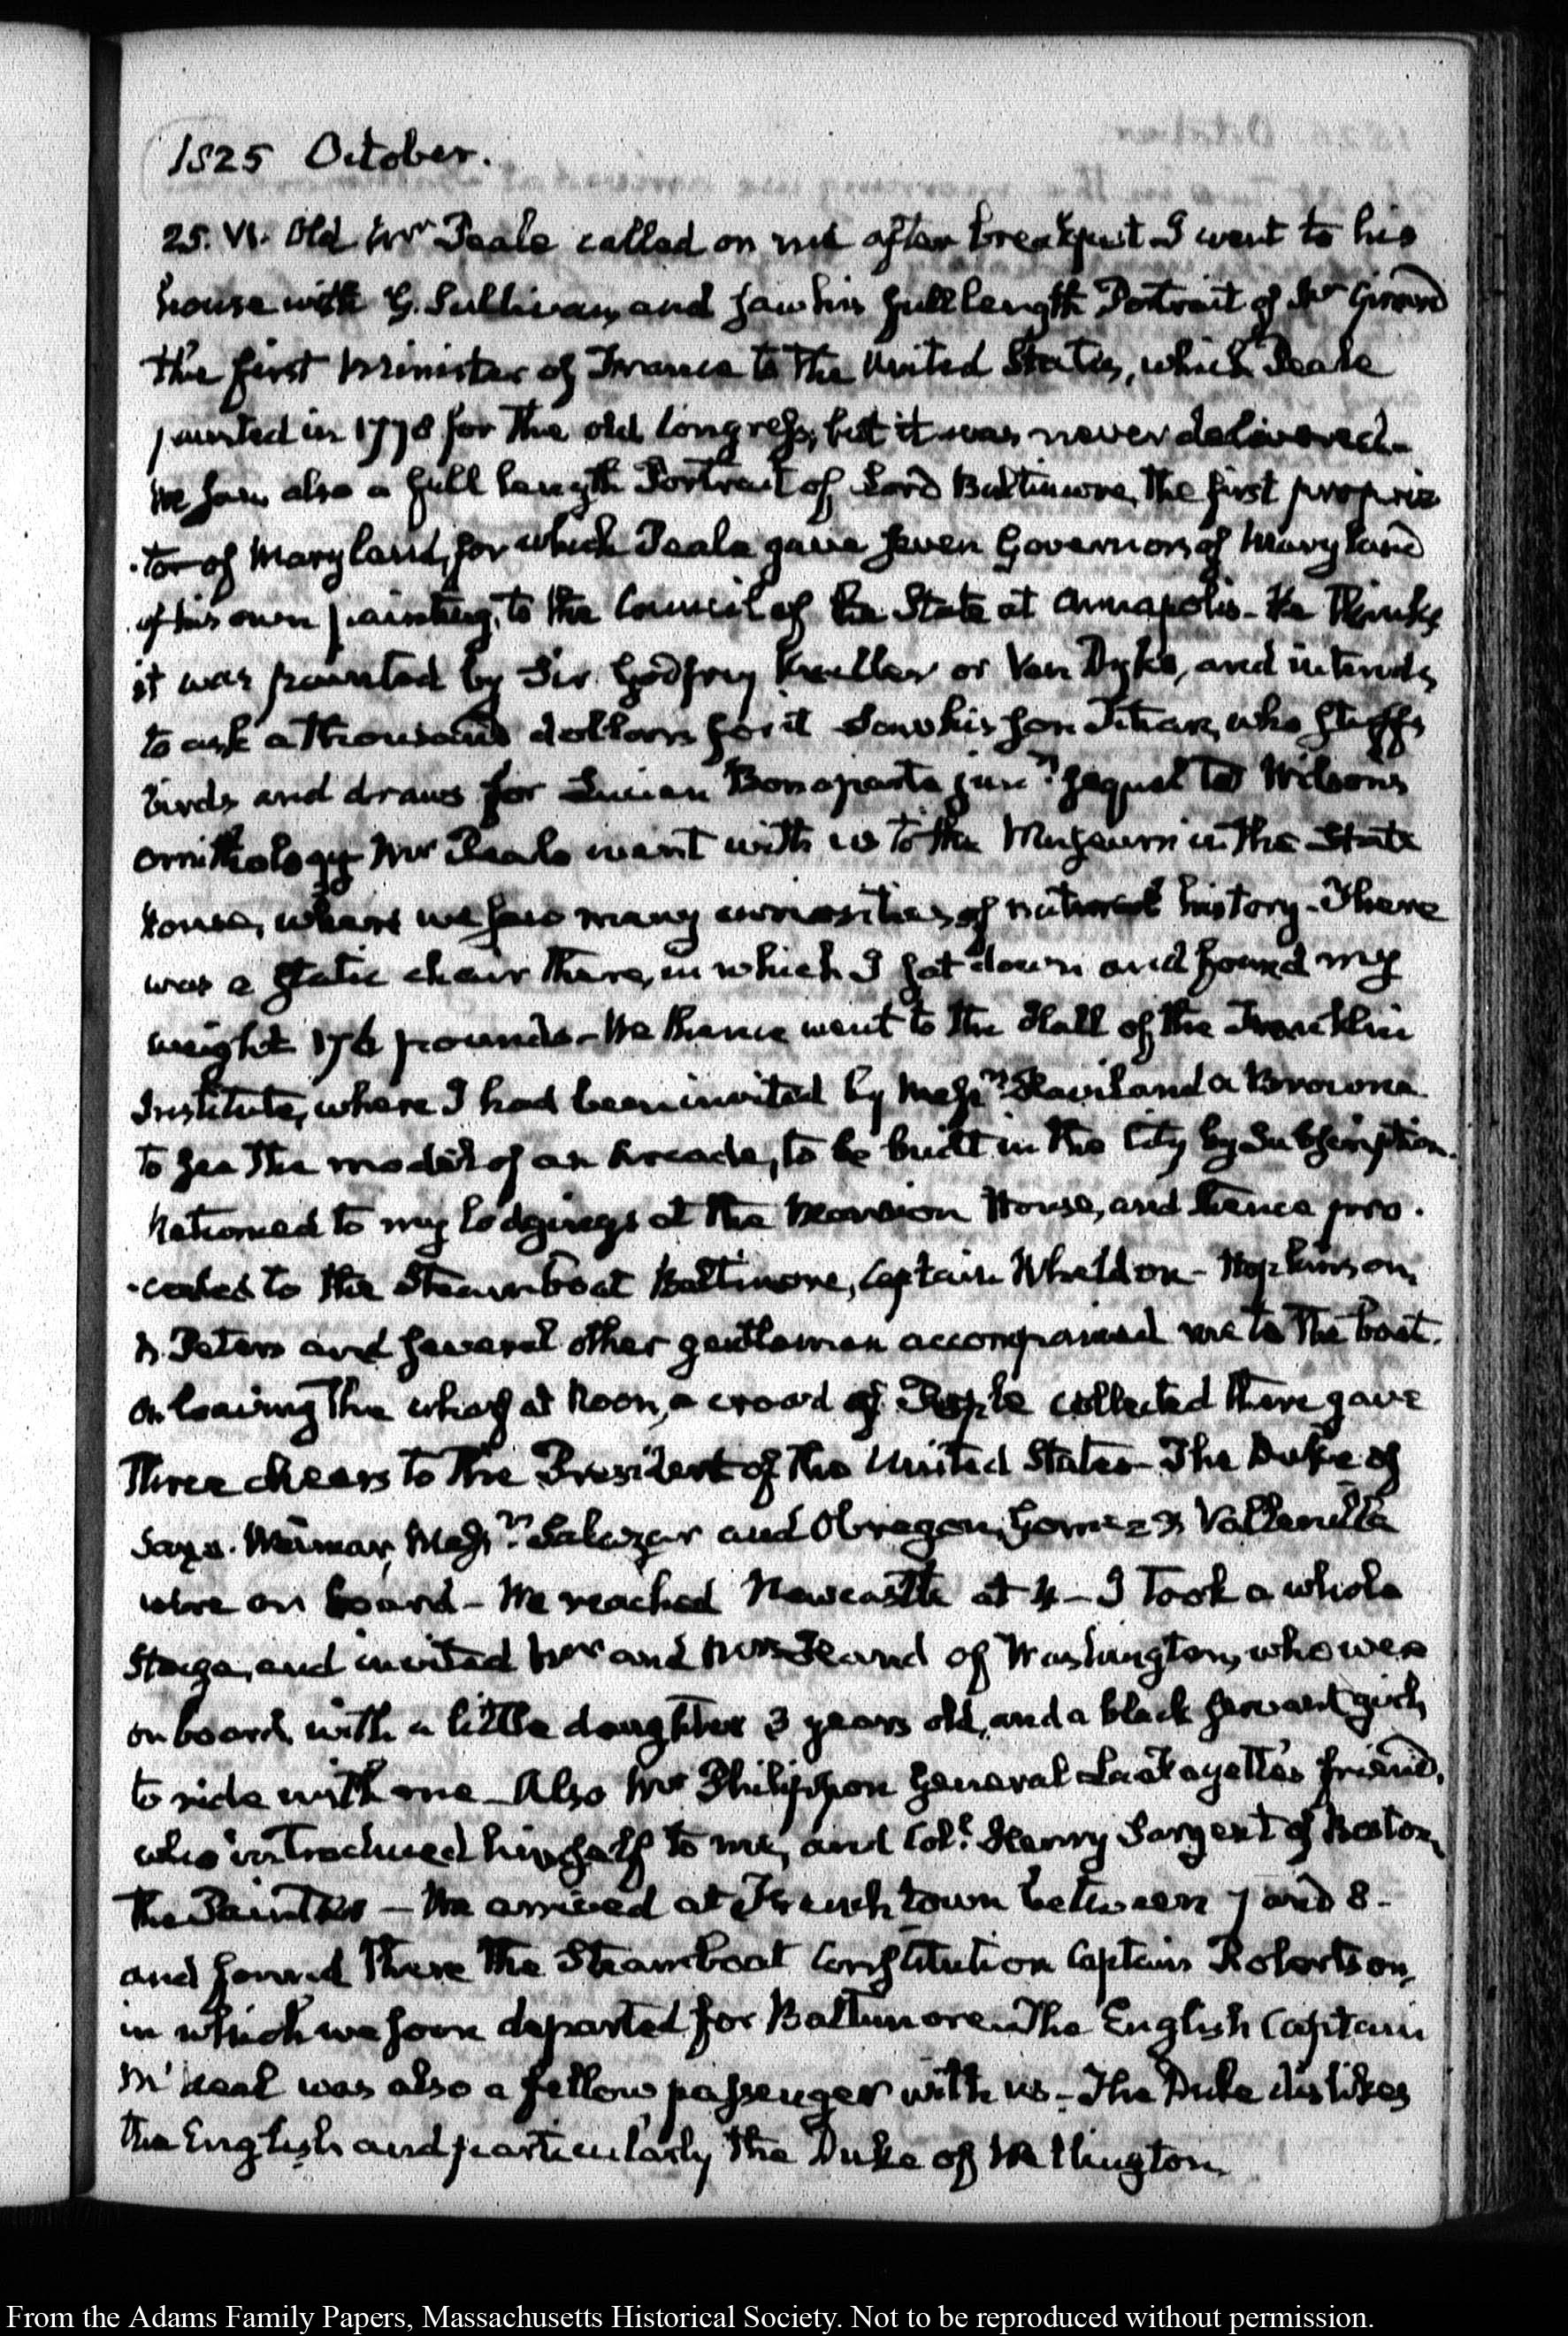 1825 October.
25. VI. Old Mr Peale called on me after breakfast I went to his
house with G. Sullivan, and saw his full length Portrait of Mr Girard
the first Minister of France to the United States, which Peale
painted in 1778 for the old Congress, but it was never delivered.
We saw also a full length Portrait of Lord Baltimore, the first proprie
-tor of Maryland, for which Peale gave seven Governors of Maryland
of his own painting, to the Council of the State at Annapolis- He thinks
it was painted by Sir Godfrey Kneller or Van Dyke, and intends
to ask a thousand dollars for it Saw his son Titian, who stuffs
birds and draws for Lucian Bonaparte junr. sequel to Wilson's
ornithology Mr Peale went with us to the Museum in the State
house, where we saw many curiosities of natural history- There
was a static chair there, in which I sat down and found my
weight 176 pounds- We thence went to the Hall of the Franklin
Institute, where I had been invited by Messrs. Haviland & Browne
to see the model of an Arcade, to be built in the City by Subscription.
Returned to my lodgings at the Mansion House, and thence pro-
-ceeded to the Steamboat Baltimore, Captain Wheldon- Hopkinson,
R. Peters and several other gentlemen accompanied me to the boat.
On leaving the wharf at Noon, a crowd of People collected there gave
three cheers to the President of the United States- The Duke of
Saxe-Weimar, Messrs. Salazar and Obregon, Gomez & Vallenilla
were on board- We reached Newcastle at 4- I took a whole
Stage, and invited Mr and Mrs Heard of Washington, who were
on board, with a little daughter 3 years old, and a black servant girl,
to ride with me- Also Mr Philippon General LaFayette's friend,
who introduced himself to me, and Coll. Henry Sargent of Boston,
the Painter- We arrived at French town between 7 and 8-
and found there the Steamboat Constitution Captain Robertson,
in which we soon departed for Baltimore. The English Captain
was also a fellow passenger with us- The Duke dislikes
the English and particularly the Duke of Wellington.
From the Adams Family Papers, Massachusetts Historical Society. Not to be reproduced without permission.